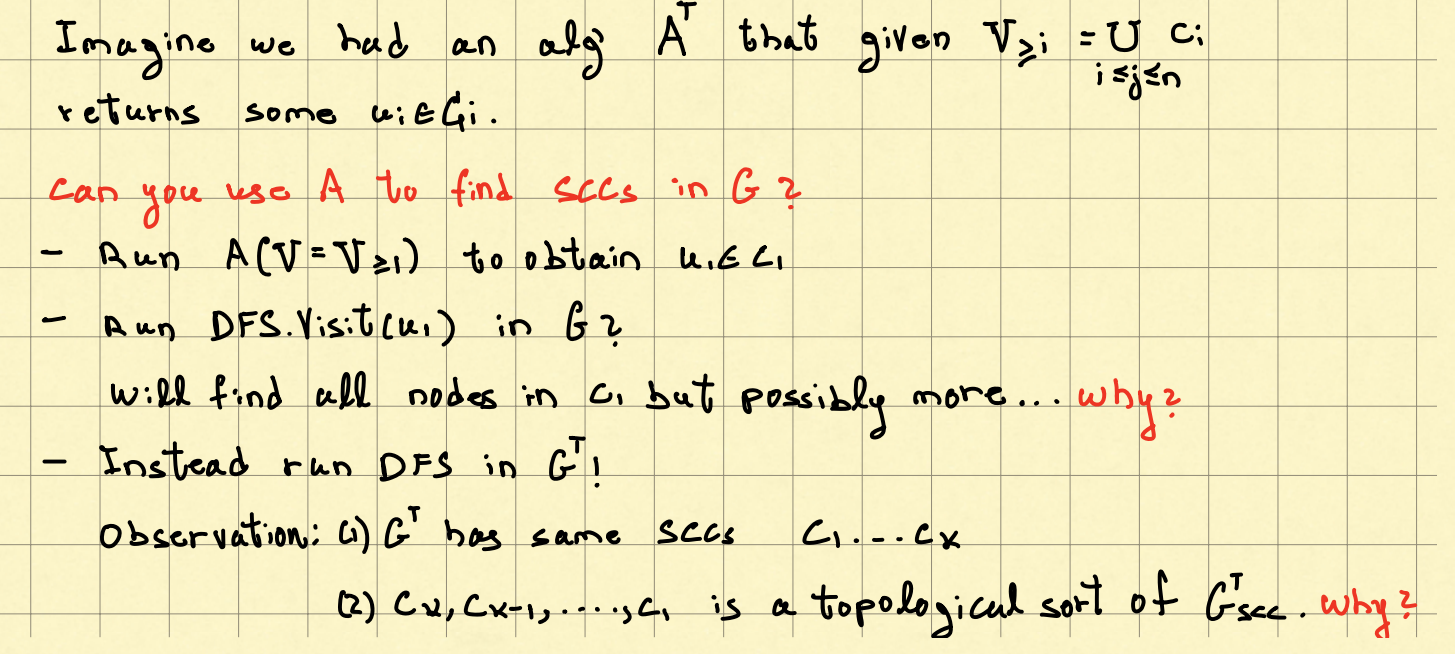 Imagine we had an alg A^T that given V≥i = ∪ Ci
i≤j≤n
returns some ui∈Gi.
can you use A to find SCCs in G?
- Run A(V=V≥1) to obtain u1∈C1
- Run DFS.Visit(u1) in G?
Will find all nodes in C1 but possibly more... why?
- Instead run DFS in G^T!
Observation: (1) G^T has same SCCs C1...Ck
(2) Ck, Ck-1, ...., C1 is a topological sort of G^Tscc. why?